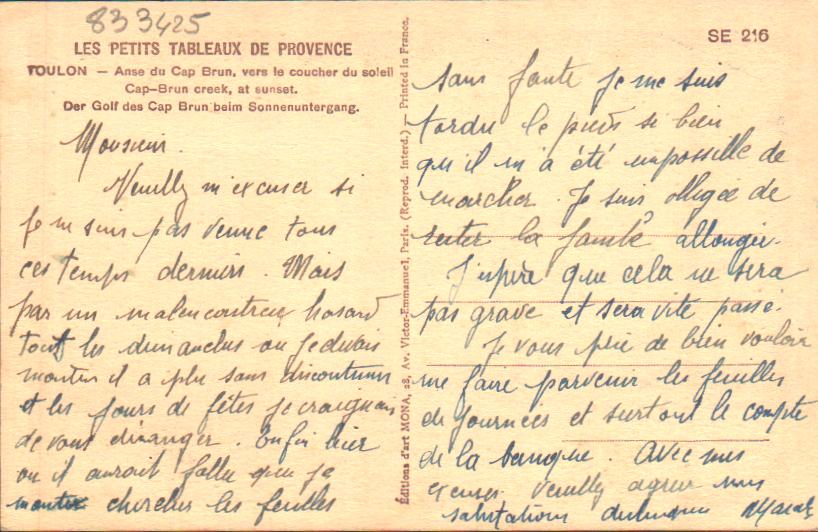 833425
LES PETITS TABLEAUX DE PROVENCE
TOULON — Anse du Cap Brun, vers le coucher du soleil
Cap-Brun creek, at sunset.
Der Golf des Cap Brun beim Sonnenuntergang.
Monsieur.
Veuillez m'excuser si
je ne suis pas venue tous
ces temps derniers. Mais
par un malencontreux hasard
tout les dimanches ou je devais
monter il a plu sans discontinuer
et les jours de fêtes je craignais
de vous déranger. Enfin hier
ou il aurait fallu que je
monte chercher les feuilles
Éditions d'art MONA, 28, Av. Victor-Emmanuel, Paris. (Reprod. interd.) — Printed in France.
SE 216
sans faute je me suis
tordu le pied si bien
qu'il m'a été impossible de
marcher. Je suis obligée de
rester la jambe allongée.
J'espère que cela ne sera
pas grave et sera vite passé.
Je vous prie de bien vouloir
me faire parvenir les feuilles
de journées et surtout le compte
de la banque. Avec mes
excuses veuillez agréer mes
salutations